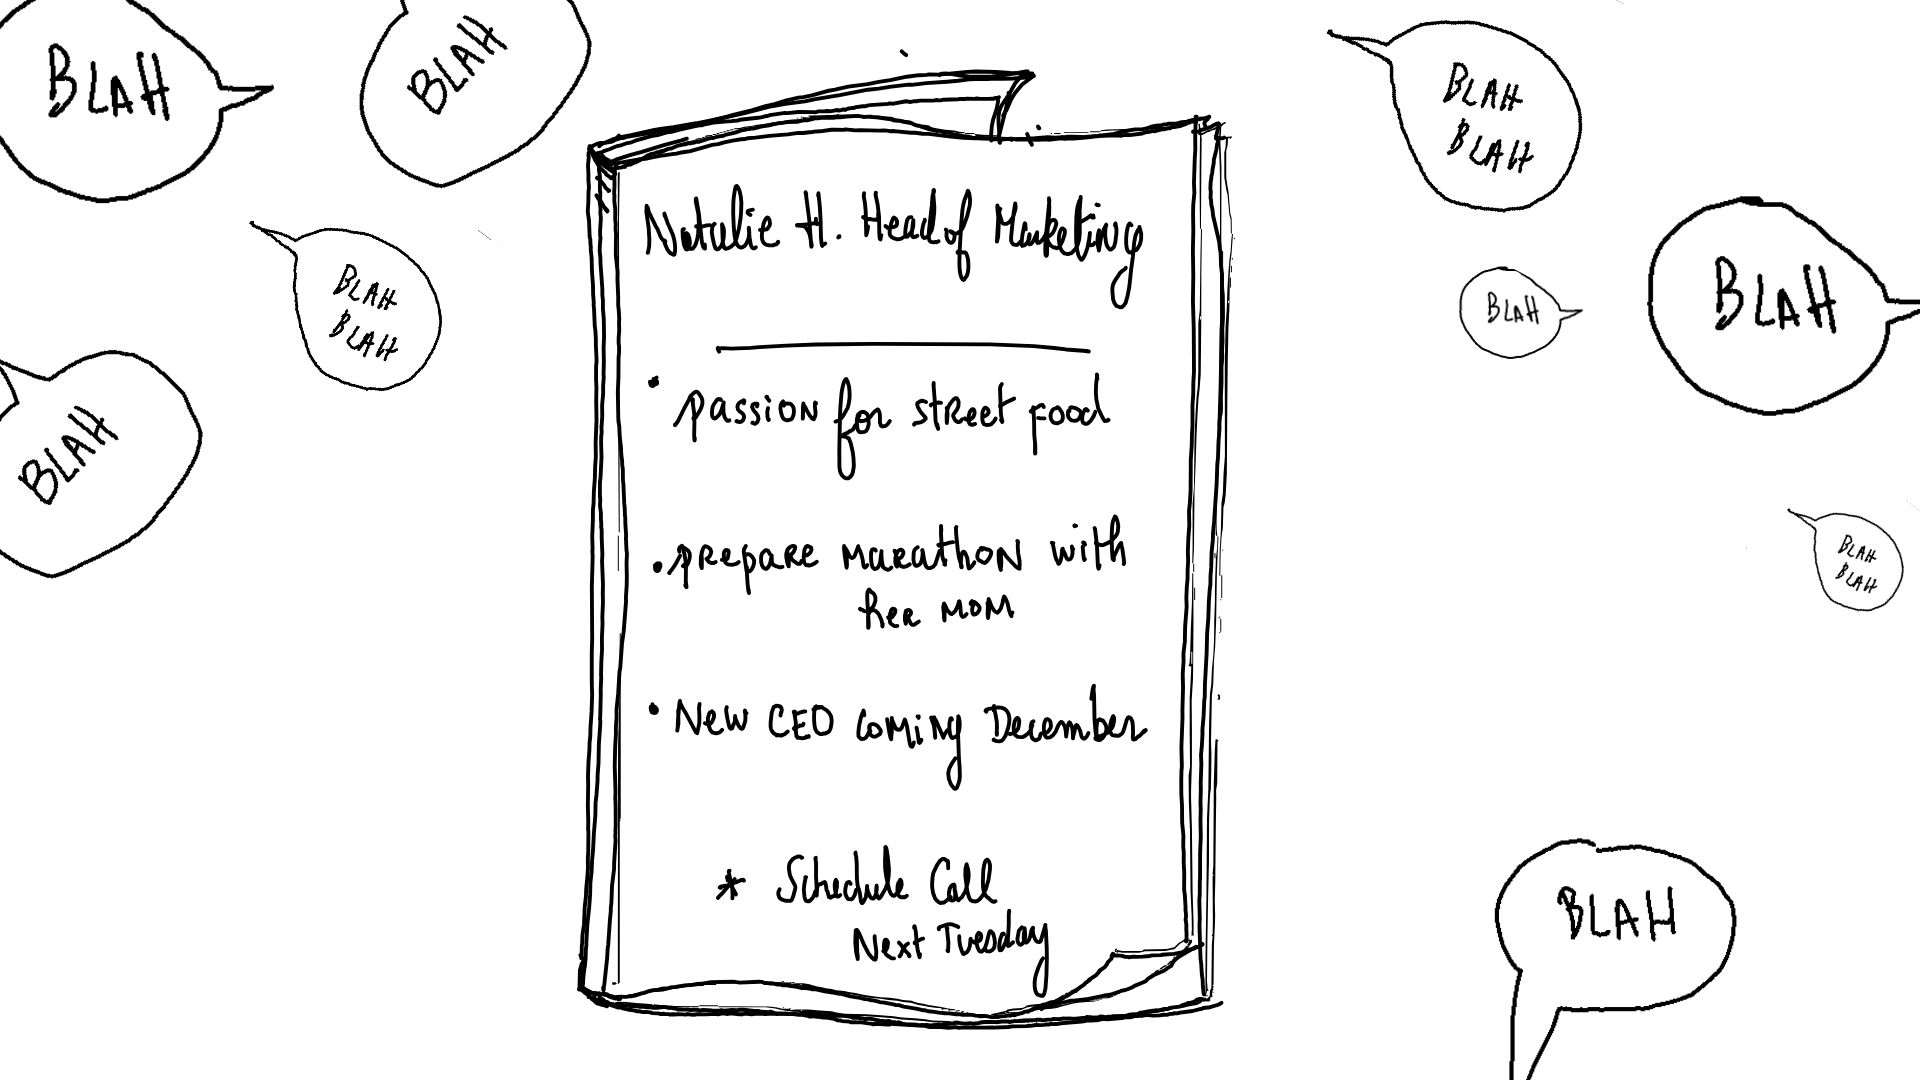 BLAH
BLAH
BLAH
BLAH
BLAH
BLAH
BLAH
BLAH
BLAH
Natalie H. Head of Marketing
• passion for street food
• prepare marathon with
her mom
• New CEO coming December
* Schedule Call
Next Tuesday
BLAH
BLAH
BLAH
BLAH